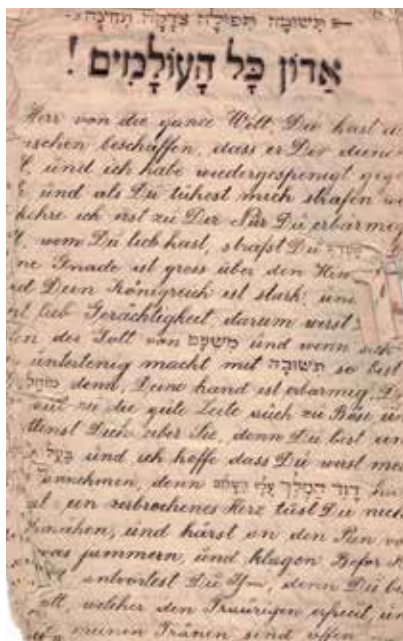 תשובה תפילה צדקה תחינה
אַדוֹן כָּל הָעוֹלָמִים !
Herr von die ganze Welt Du hast
schen beschaffen, dass er Dir diene
und ich habe wiedergespenigt geg
und als Du tühest mich strafen
kehre ich erst zu Dir Nür Dü erbarmig
wem Dü lieb hast, strafst Dü
ne Gnade ist gross über den Him
d Dein Königreich ist stark, und
nt lieb Gerachtigkeit, darum werst
der Gott von מִשְׁפָּט und wenn sich
untertenig macht mit תשובה so bist
denn, Deine hand ist erbarmig, D
zu die gute Leite auch zu Böse ün
ttenst Dich über Sie, denn Dü bist
בעל und ich hoffe dass Dü werst me
annehmen, denn דָוִד הַמֶלֶךְ עָלָיו הַשָלוֹם
ein zerbrochenes Herz tüst Dü nich
, und härst an den Pen vo
was jammern, und klagen Befor
antvortest Dü Ihm, denn Dü be
ott, welcher den Traürigen erfreit, ün
meinen Tränen sind